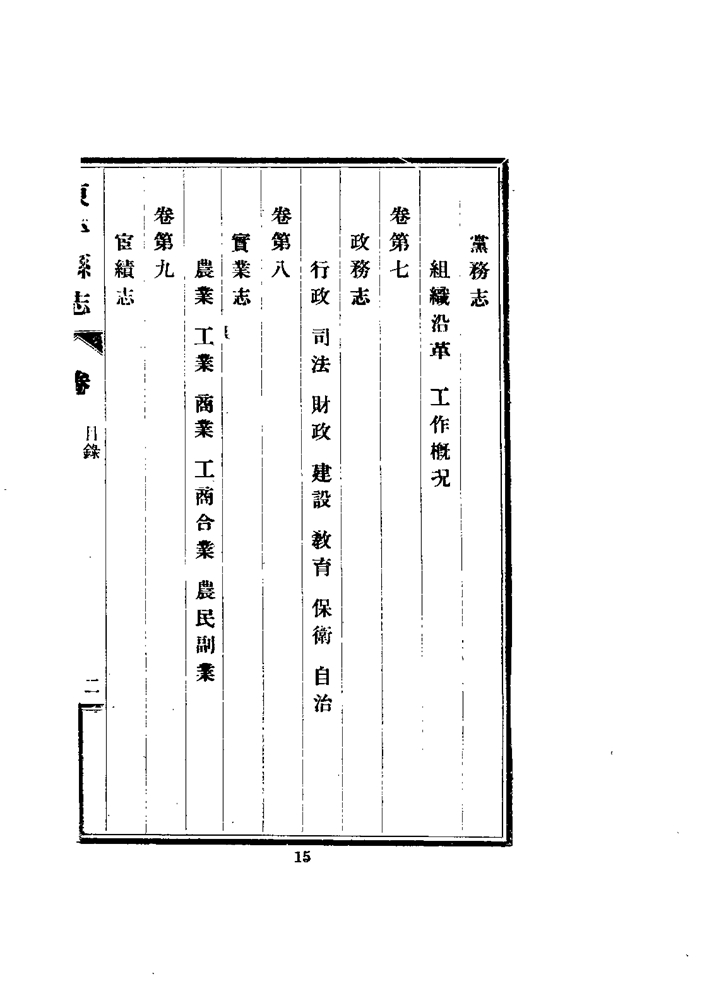 黨務志
組織沿革 工作概況
卷第七
政務志
行政 司法 財政 建設 教育 保衛 自治
卷第八
實業志
農業 工業 商業 工商合業 農民副業
卷第九
宦績志
東 縣志 卷 目錄 二
15